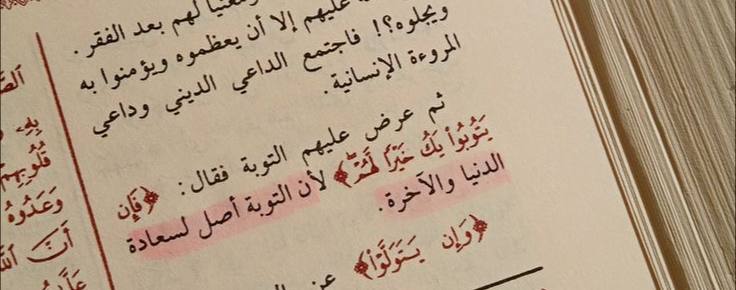 لهم بعد الفقر.
عليهم إلا أن يعظموه ويؤمنوا به
ويجلوه؟! فاجتمع الداعي الديني وداعي
المروءة الإنسانية.
ثم عرض عليهم التوبة فقال: ﴿فَإِن
يَتُوبُوا۟ يَكُ خَيْرًا لَّهُمْ ۖ﴾ لأن التوبة أصل لسعادة
الدنيا والآخرة.
﴿وَإِن يَتَوَلَّوْا۟﴾ عن
بِهِۦ
قُلُوبِهِمْ
وَعَدُوهُ
أَنَّ ٱللَّ